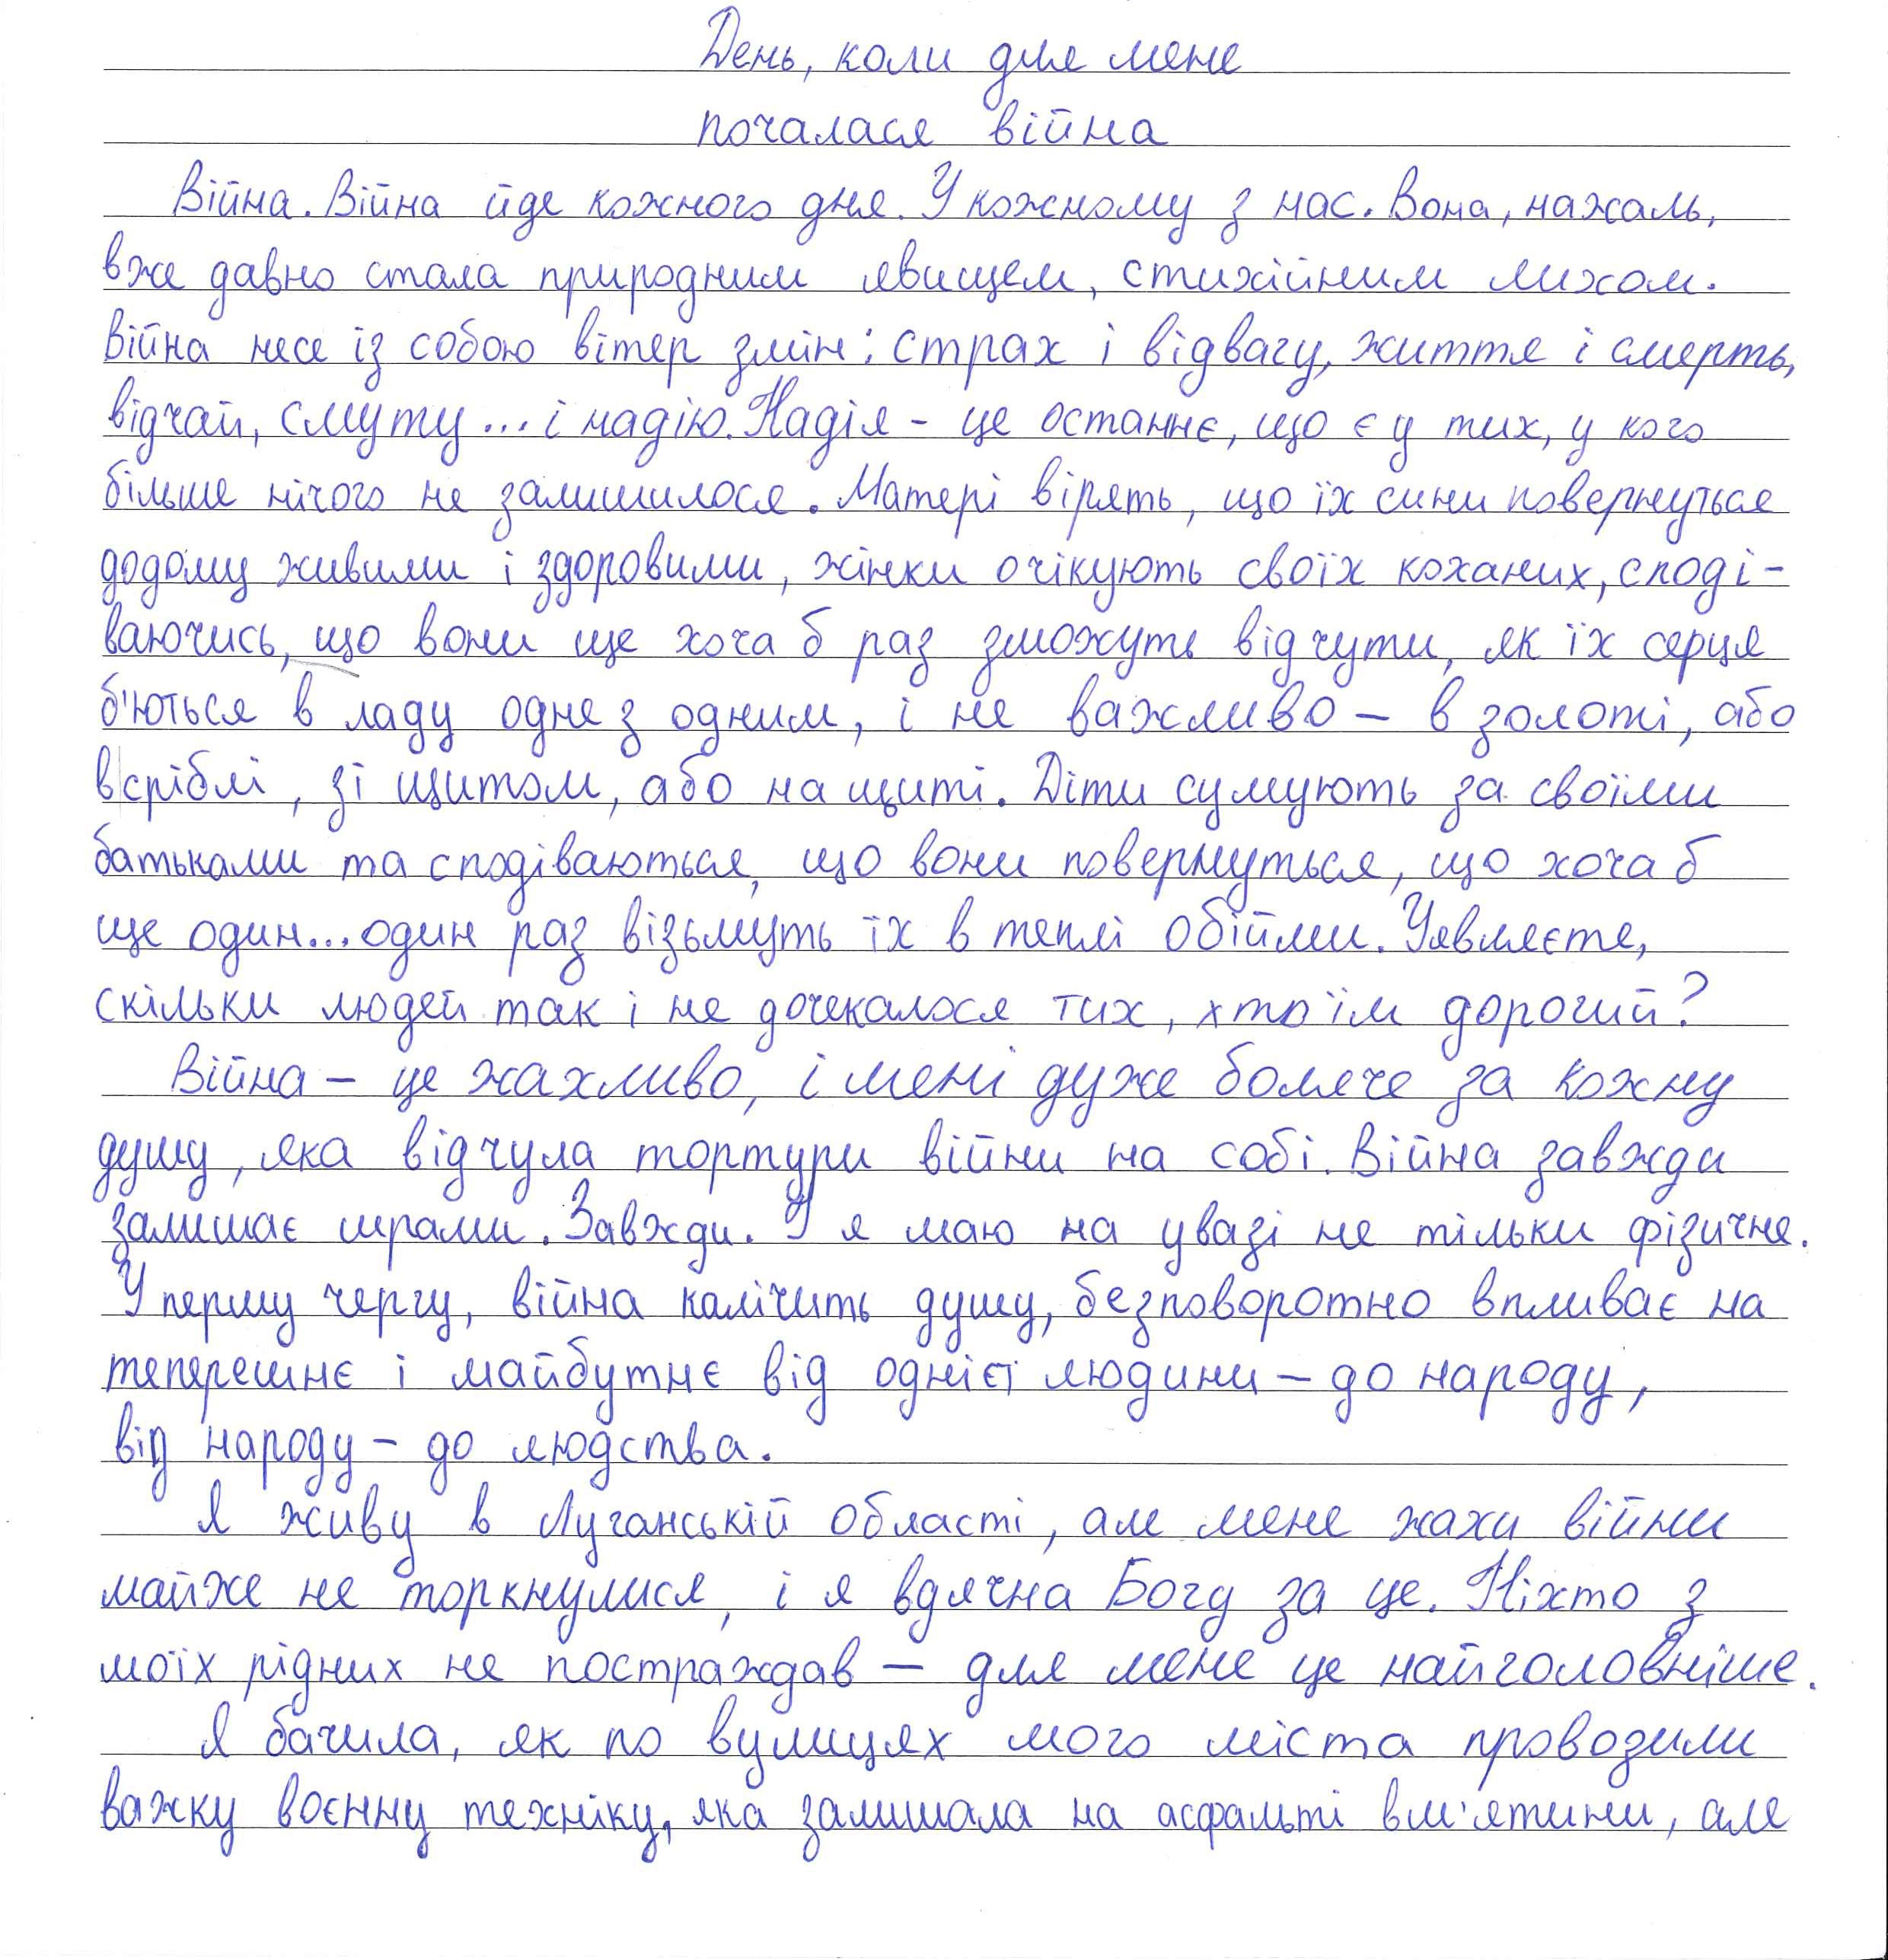 День, коли для мене
почалася війна
Війна. Війна йде кожного дня. У кожному з нас. Вона, нажаль,
вже давно стала природним явищем, стихійним лихом.
Війна несе із собою вітер змін: страх і відвагу, життя і смерть,
відчай, смуту... і надію. Надія - це останнє, що є у тих, у кого
більше нічого не залишилося. Матері вірять, що їх сини повернуться
додому живими і здоровими, жінки очікують своїх коханих, споді-
ваючись, що вони ще хоча б раз зможуть відчути, як їх серця
б'ються в ладу одне з одним, і не важливо - в золоті, або
в сріблі, зі щитом, або на щиті. Діти сумують за своїми
батьками та сподіваються, що вони повернуться, що хоча б
ще один... один раз візьмуть їх в теплі обійми. Уявляєте,
скільки людей так і не дочекалося тих, хто їм дорогий?
Війна - це жахливо, і мені дуже боляче за кожну
душу, яка відчула тортури війни на собі. Війна завжди
залишає шрами. Завжди. І я маю на увазі не тільки фізичне.
У першу чергу, війна калічить душу, безповоротно впливає на
теперешнє і майбутнє від однієї людини - до народу,
від народу - до людства.
Я живу в Луганській області, але мене жахи війни
майже не торкнулися, і я вдячна Богу за це. Ніхто з
моїх рідних не постраждав - для мене це найголовніше.
Я бачила, як по вулицях мого міста проводили
важку воєнну техніку, яка залишала на асфальті вм'ятини, але